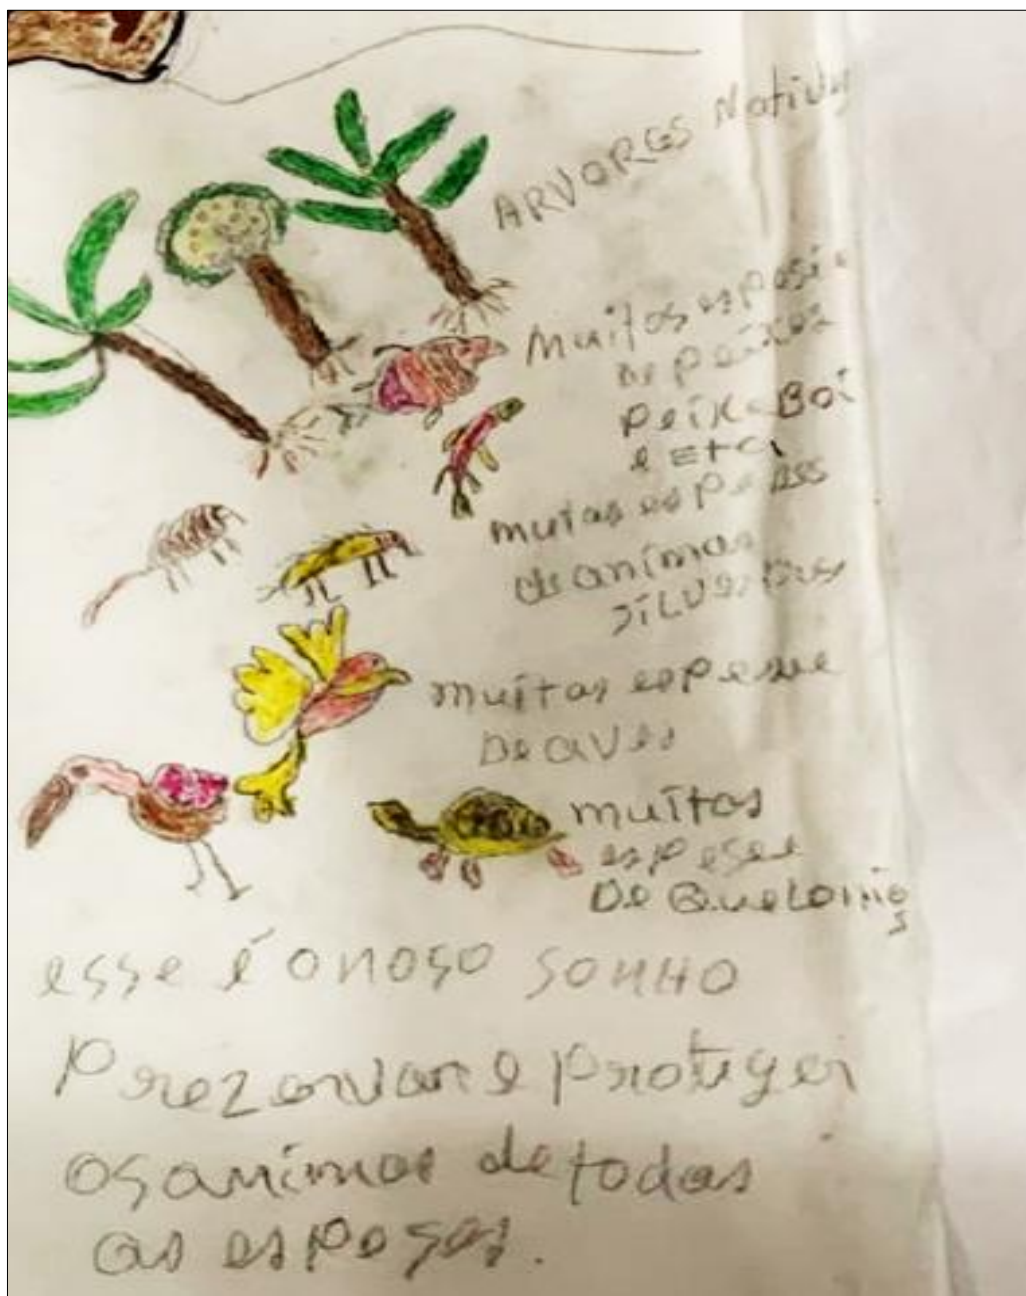 ARVORES Nativas
Muitos esposi
De peixes
peixe Boi
e Etc
muitas espesss
de animas
silvestres
muitas espesee
De aves
muitos
espesee
De Quelonios
esse é o noso sonho
Prezervar e proteger
os animas de todas
as espesas.